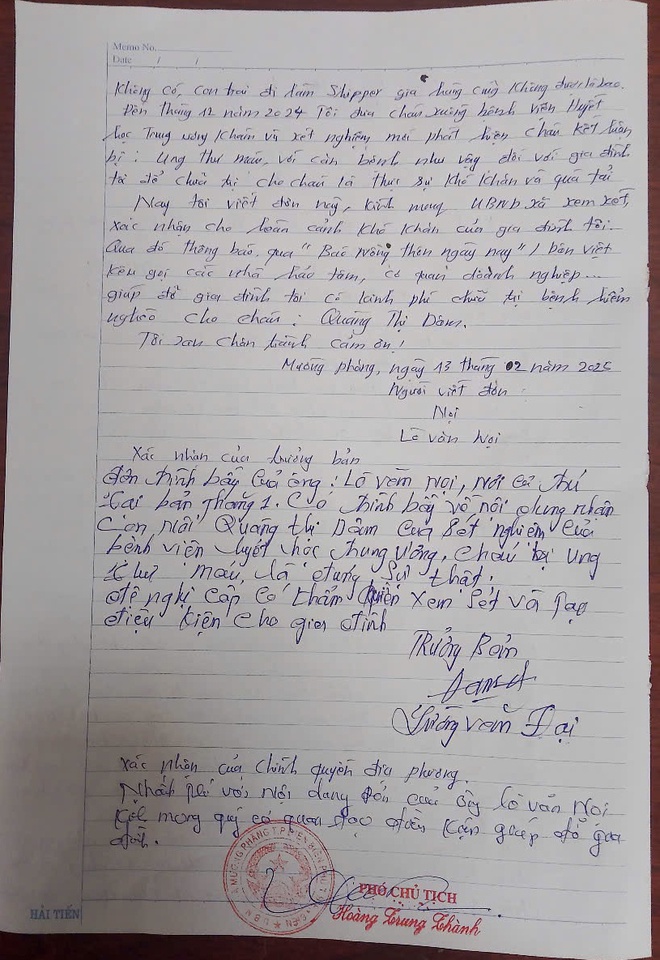 Memo No.
Date / /
Không có, con trai đi làm Shipper giao hàng cũng không được là bao.
Đến tháng 12 năm 2024 Tôi đưa cháu xuống bệnh viện Huyết
học Trung ương khám và xét nghiệm mới phát hiện cháu kết luận
bị: Ung thư máu, với căn bệnh như vậy đối với gia đình
tôi để chữa trị cho cháu là thực sự khó khăn và quá tải
Nay tôi viết đơn này, kính mong UBND xã xem xét,
xác nhận cho hoàn cảnh khó khăn của gia đình tôi.
Qua đó thông báo, qua "Báo nông thôn ngày nay" / bên viết
kêu gọi các nhà hảo tâm, cơ quan doanh nghiệp...
giúp đỡ gia đình tôi có kinh phí chữa trị bệnh hiểm
nghèo cho cháu: Quàng Thị Dâm.
Tôi xin chân thành cảm ơn!
Mường phăng, ngày 13 tháng 02 năm 2025
Người viết đơn
Nọi
Lò văn Nọi
Xác nhận của trưởng bản
đơn trình bầy của ông: Lò văn Nọi, nơi cư trú
tại bản Thăng 1. Có trình bầy về nội dung nhận
con nuôi Quàng thị Dâm của sét nghiệm của
bệnh viện huyết học trung ương, cháu bị ung
thư máu, là đúng sự thật.
đề nghị cấp có thẩm quyền xem sét và tạo
điều kiện cho gia đình
Trưởng Bản
Lường văn Đại
Xác nhận của chính quyền địa phương.
Nhất trí với nội dung đơn của ông lò văn Nọi
Kính mong quý cơ quan tạo điều kiện giúp đỡ gia
đình.
PHÓ CHỦ TỊCH
Hoàng Trung Thành
HẢI TIẾN